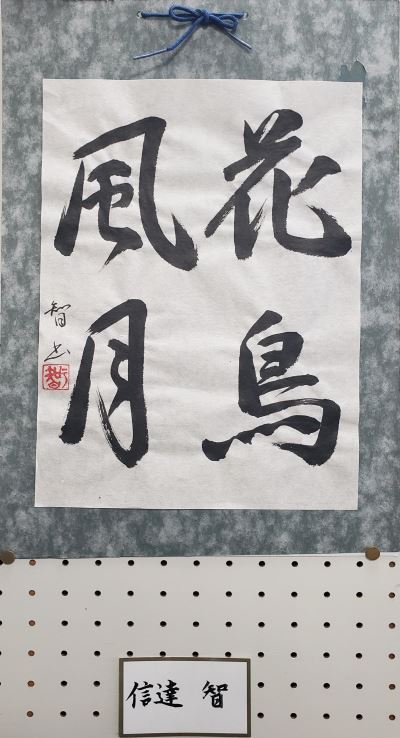 花鳥
風月
智書
信達 智